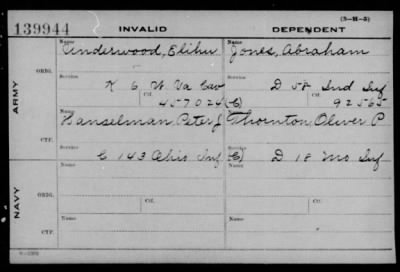 (3-H-3)
139944 INVALID DEPENDENT
Name Name
Underwood, Elihu Jones, Abraham
ORIG. Service Service
K 6 W Va Cav D 58 Ind Inf
Ctf. Ctf.
ARMY 457024 (C) 92565
Name Name
Hanselman, Peter J Thornton, Oliver P
Service Service
C 143 Ohio Inf (C) D 18 Mo Inf
NAVY
Name Name
ORIG.
Service Service
Ctf. Ctf.
Name Name